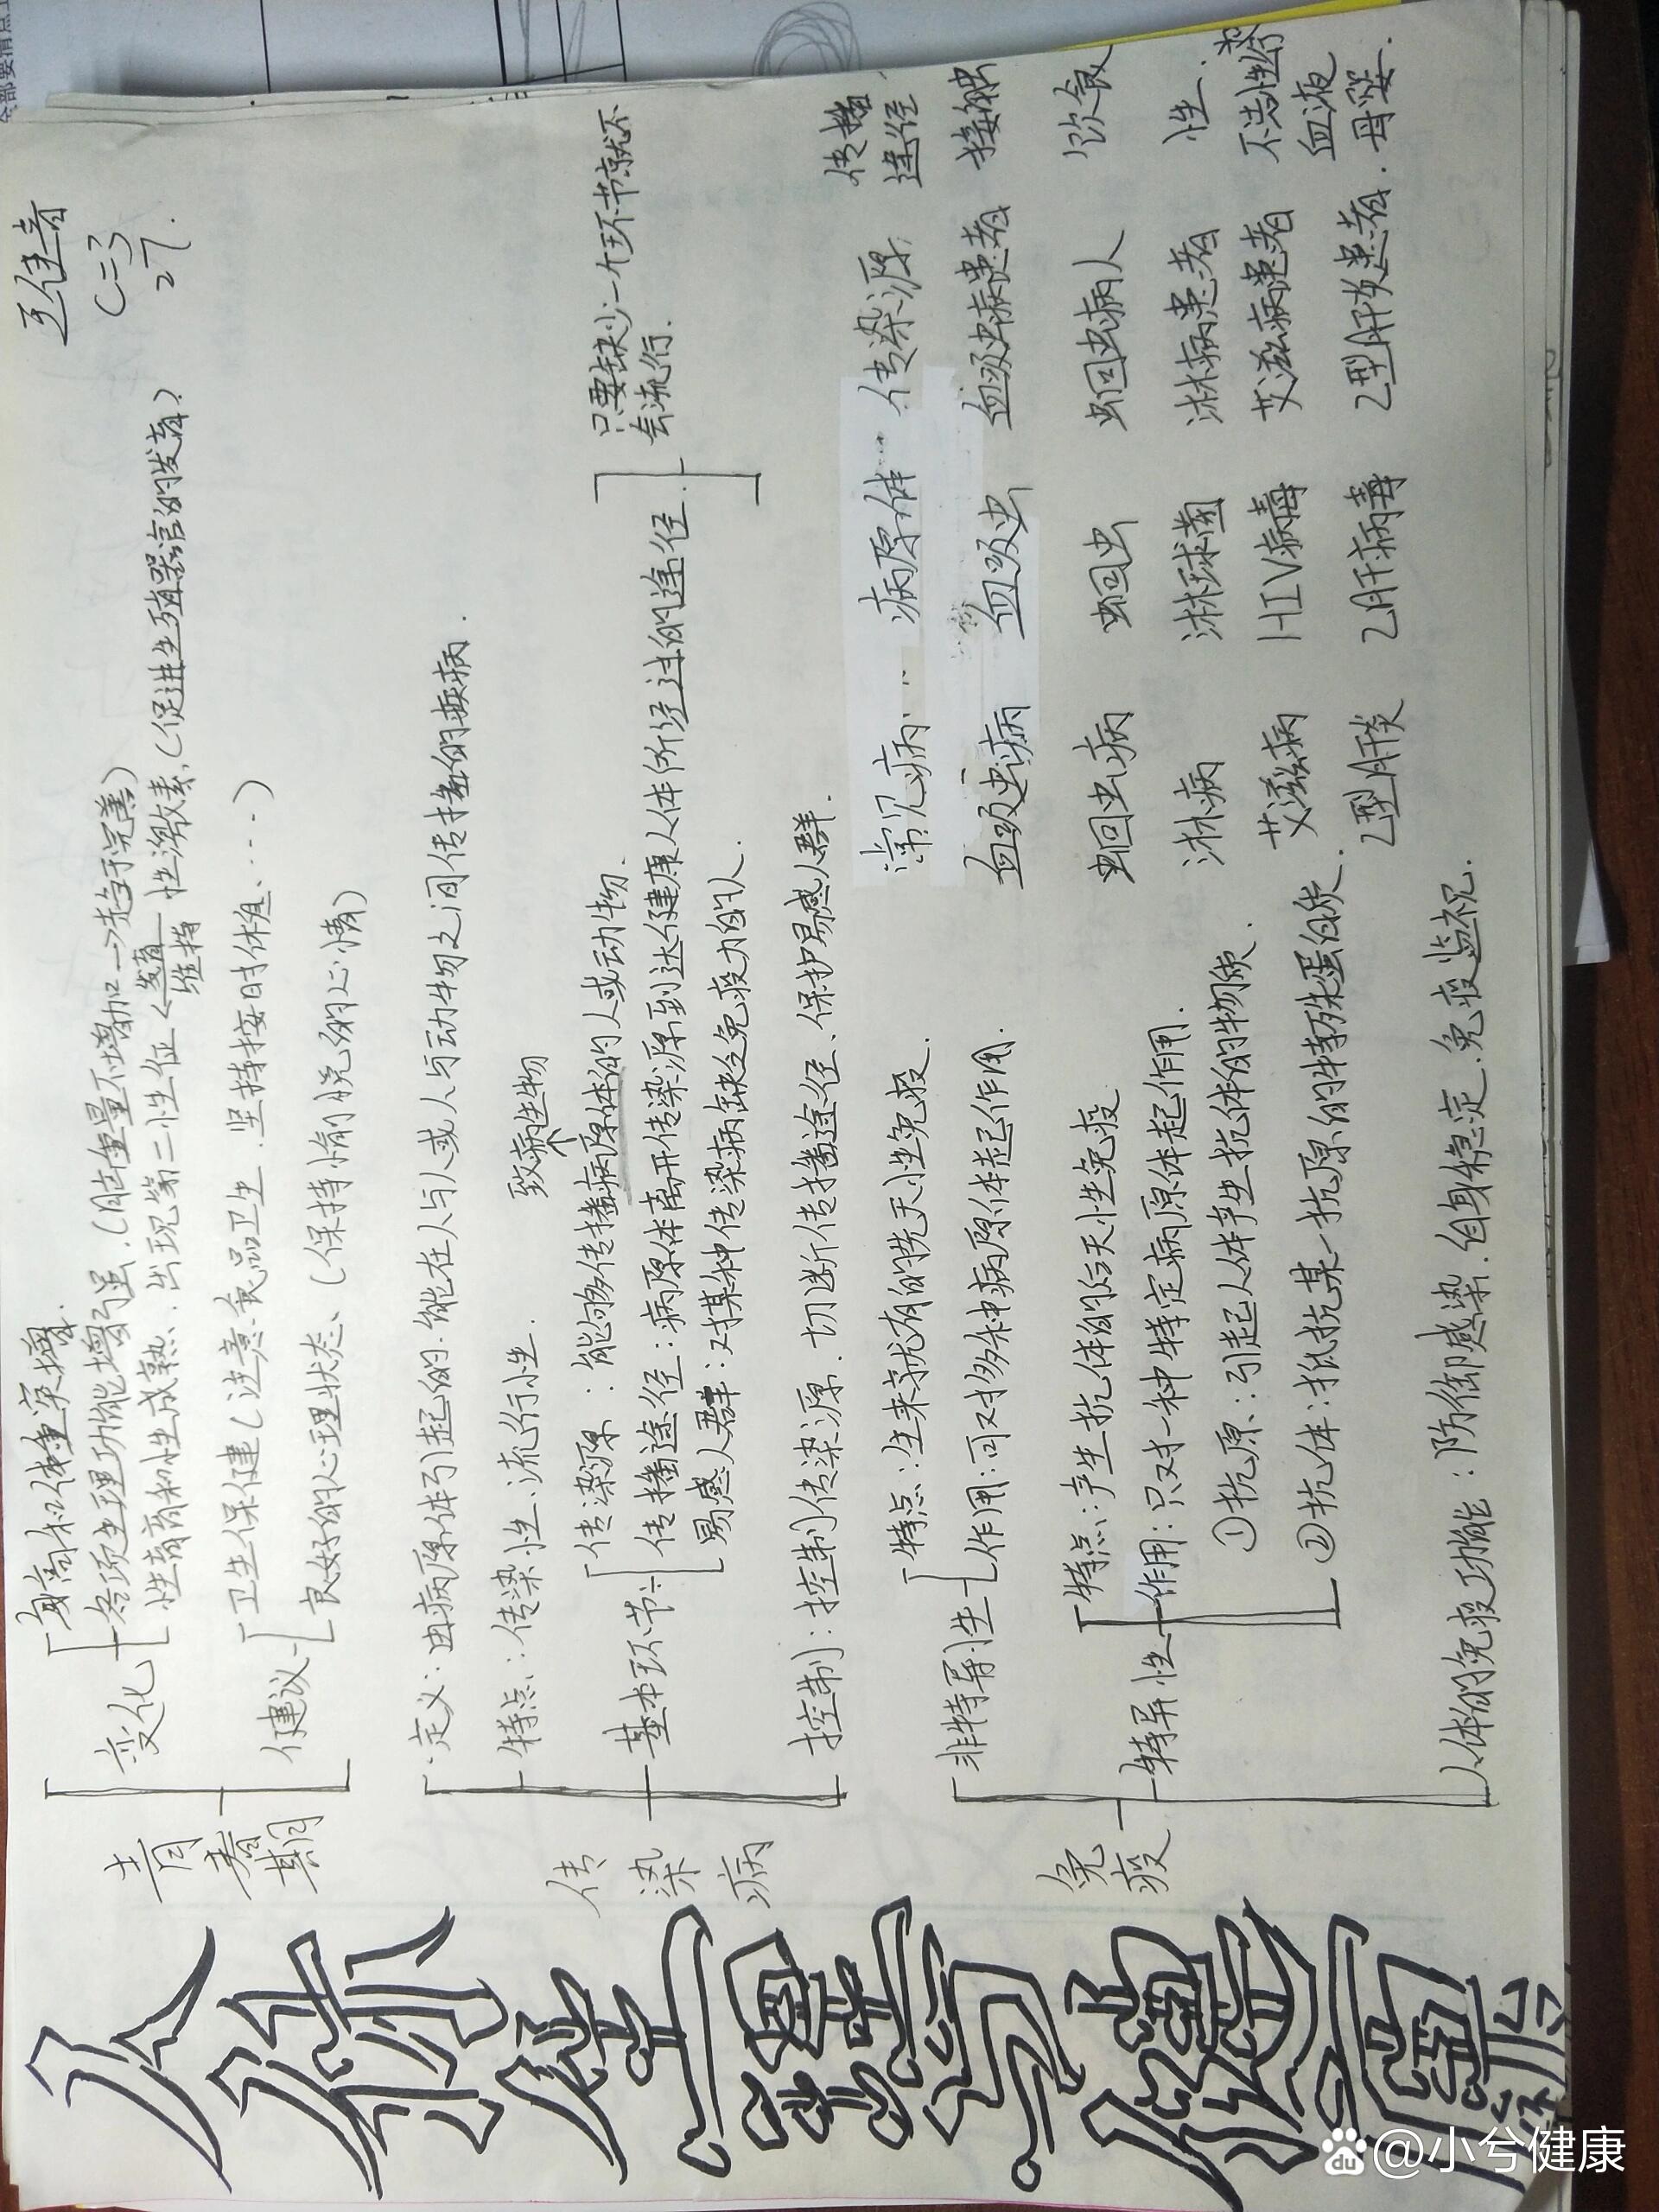 人体生长发育与健康
王佳音
C二3
27.
青春期
变化
身高和体重突增.
各项生理功能增强.(脑重量不增加→趋于完善)
性器官和性成熟、出现第二性征<发育 维持 性激素,(促进生殖器官的发育)
建议
卫生保健(注意食品卫生.坚持按时休息、····)
良好的心理状态、(保持愉悦的心情)
传染病
定义:由病原体引起的.能在人与人或人与动物之间传播的疾病.
特点:传染性.流行性.
致病生物
基本环节:
传染源:能够传播病原体的人或动物.
传播途径:病原体离开传染源到达健康人体所经过的途径.
易感人群:对某种传染病缺乏免疫力的人.
只要缺少一个环节就不会流行.
控制:控制传染源.切断传播途径、保护易感人群.
免疫
非特异性
特点:生来就有的先天性免疫.
作用:可对多种病原体起作用.
特异性
特点:产生抗体的后天性免疫
作用:只对一种特定病原体起作用.
①抗原:引起人体产生抗体的物质.
②抗体:抵抗某一抗原的特殊蛋白质.
人体的免疫功能:防御感染.自身稳定.免疫监视.
常见病 病原体 传染源 传播途径
血吸虫病 血吸虫 血吸虫病患者 接触
蛔虫病 蛔虫 蛔虫病人 饮食
淋病 淋球菌 淋病患者 性.
艾滋病 HIV病毒 艾滋病患者 不洁性 血液
乙型肝炎 乙肝病毒 乙型肝炎患者.母婴.
@小兮健康